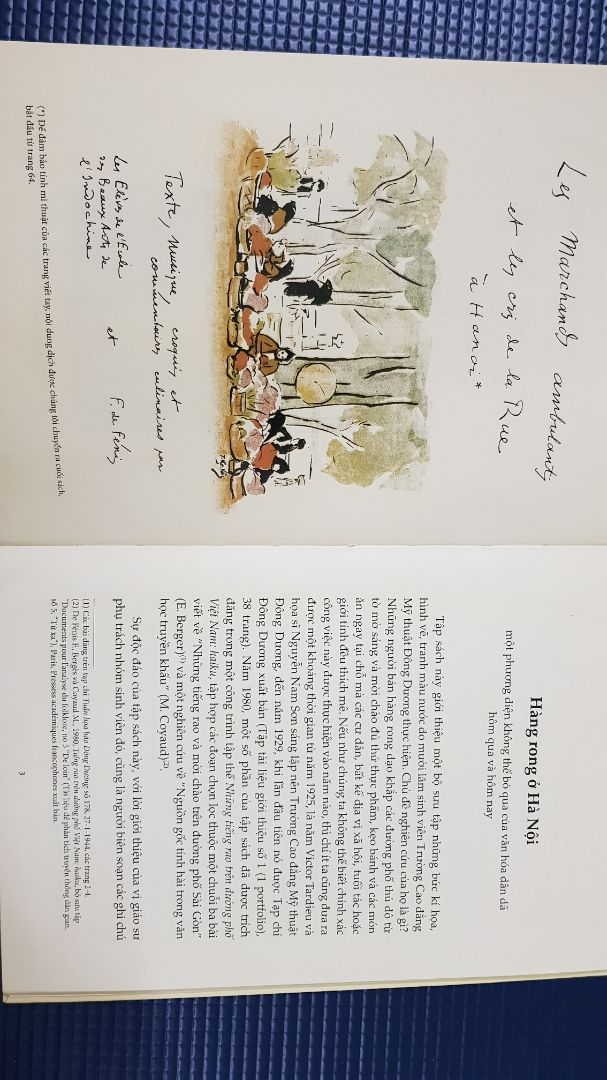 Les Marchands ambulants
et les cris de la Rue
à Hanoi*
Texte, musique, croquis et
commentaires culinaires par
Les Elèves de l'Ecole
des Beaux Arts de
l'Indochine
et
F. de Fénis
(*) Để đảm bảo tính mĩ thuật của các trang viết tay, nội dung dịch được chúng tôi chuyển ra cuối sách,
bắt đầu từ trang 64.
Hàng rong ở Hà Nội
một phương diện không thể bỏ qua của văn hóa dân dã
hôm qua và hôm nay
Tập sách này giới thiệu một bộ sưu tập những bức kí họa,
hình vẽ, tranh màu nước do mười lăm sinh viên Trường Cao đẳng
Mỹ thuật Đông Dương thực hiện. Chủ đề nghiên cứu của họ là gì?
Những người bán hàng rong dạo khắp các đường phố thủ đô từ
tờ mờ sáng và mời chào đủ thứ thực phẩm, kẹo bánh và các món
ăn ngay tại chỗ mà các cư dân, bất kể địa vị xã hội, tuổi tác hoặc
giới tính đều thích mê. Nếu như chúng ta không thể biết chính xác
công việc này được thực hiện vào năm nào, thì chí ít ta cũng đưa ra
được một khoảng thời gian từ năm 1925, là năm Victor Tardieu và
họa sĩ Nguyễn Nam Sơn sáng lập nên Trường Cao đẳng Mỹ thuật
Đông Dương, đến năm 1929, khi lần đầu tiên nó được Tạp chí
Đông Dương xuất bản (Tập tài liệu giới thiệu số 1 (1 portfolio),
38 trang). Năm 1980, một số phần của tập sách đã được trích
đăng trong một công trình tập thể Những tiếng rao trên đường phố
Việt Nam: haiku, tập hợp các đoạn chọn lọc thuộc một chuỗi ba bài
viết về "Những tiếng rao và mời chào trên đường phố Sài Gòn"
(E. Berger)(1) và một nghiên cứu về "Nguồn gốc tính hài trong văn
học truyền khẩu" (M. Coyaud)(2).
Sự độc đáo của tập sách này, với lời giới thiệu của vị giáo sư
phụ trách nhóm sinh viên đó, cũng là người biên soạn các ghi chú
(1) Các bài đăng trên tạp chí Tuần hoá báo Đông Dương số 178, 27-1-1944, các trang 2-4.
(2) De Fénis F., Bergès và Coyaud M., 1980, Tiếng rao trên đường phố Việt Nam: haiku, bộ sưu tập
"Documents pour l'analyse du folklore, no 5 "De loin" (Tài liệu để phân tích truyền thống dân gian,
số 5, "Từ xa"), Paris, Pressess academiques francophones xuất bản.
3